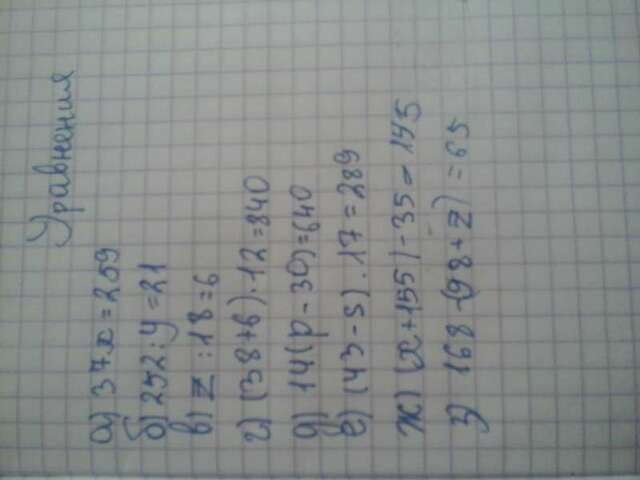 Уравнения
а) 37x = 259
б) 252 : y = 21
в) z : 18 = 6
г) (38 + b) · 12 = 840
д) 14(p - 30) = 640
е) (43 - s) · 17 = 289
ж) (x + 155) - 35 = 145
з) 168 - (98 + z) = 65